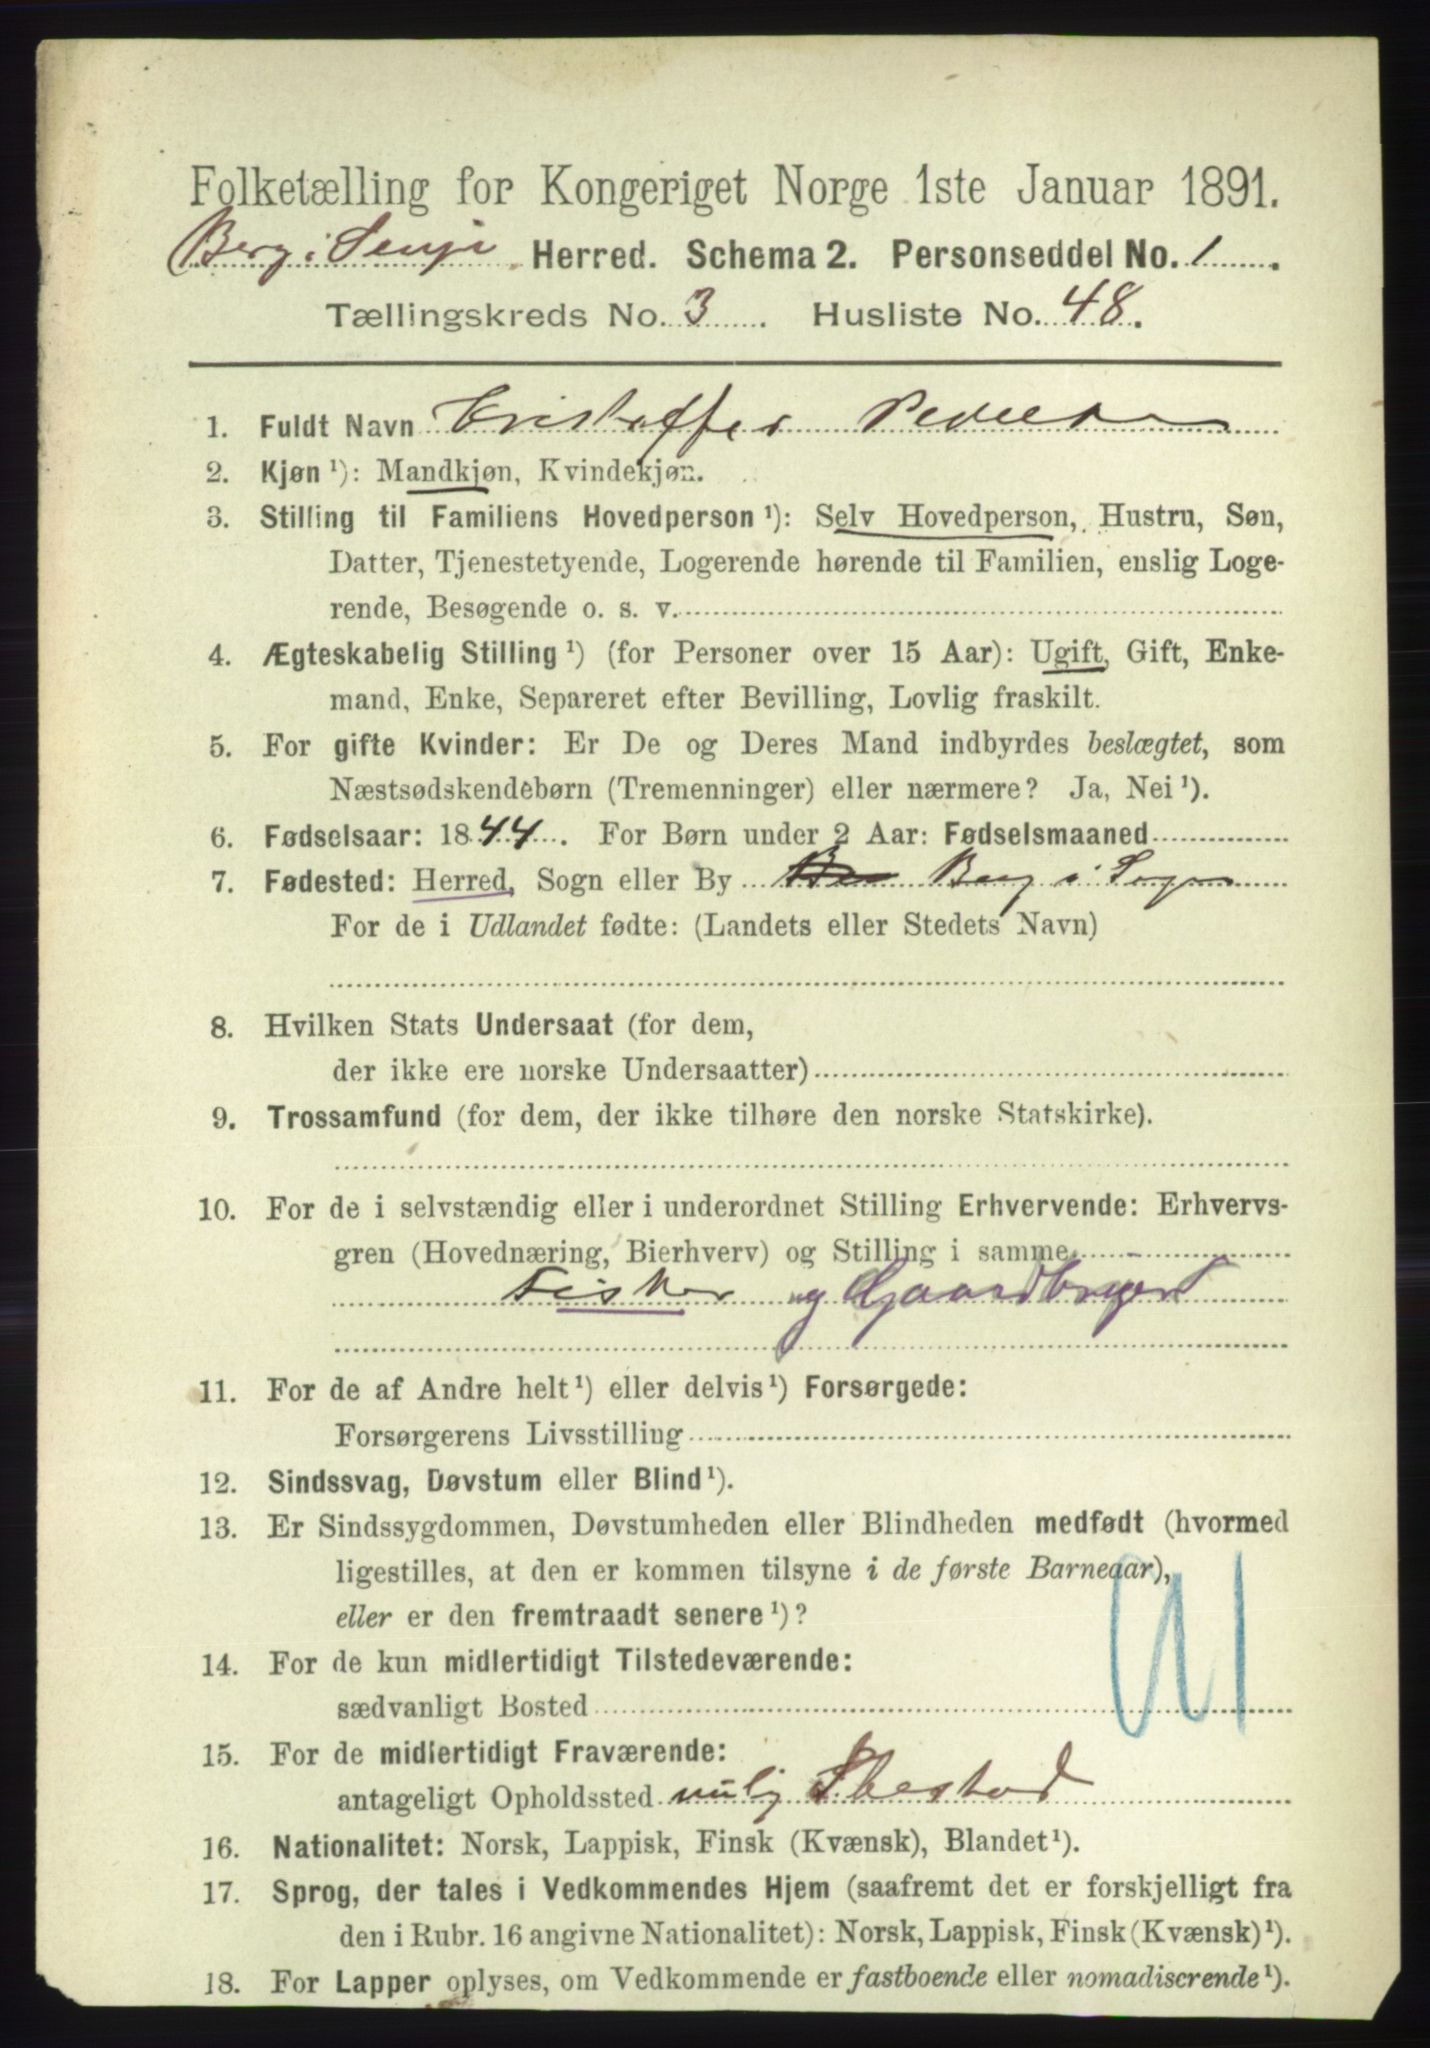 Folketælling for Kongeriget Norge 1ste Januar 1891.
Berg i Senjen Herred. Schema 2. Personseddel No. 1.
Tællingskreds No. 3. Husliste No. 48.
1. Fuldt Navn Cristoffer Pedersen
2. Kjøn ¹): Mandkjøn, Kvindekjøn.
3. Stilling til Familiens Hovedperson ¹): Selv Hovedperson, Hustru, Søn,
Datter, Tjenestetyende, Logerende hørende til Familien, enslig Loge-
rende, Besøgende o. s. v.
4. Ægteskabelig Stilling ¹) (for Personer over 15 Aar): Ugift, Gift, Enke-
mand, Enke, Separeret efter Bevilling, Lovlig fraskilt.
5. For gifte Kvinder: Er De og Deres Mand indbyrdes beslægtet, som
Næstsødskendebørn (Tremenninger) eller nærmere? Ja, Nei ¹).
6. Fødselsaar: 1844. For Børn under 2 Aar: Fødselsmaaned
7. Fødested: Herred, Sogn eller By Berg i
For de i Udlandet fødte: (Landets eller Stedets Navn)
8. Hvilken Stats Undersaat (for dem,
der ikke ere norske Undersaatter)
9. Trossamfund (for dem, der ikke tilhøre den norske Statskirke).
10. For de i selvstændig eller i underordnet Stilling Erhvervende: Erhvervs-
gren (Hovednæring, Bierhverv) og Stilling i samme
Fisker og Gaardbruger
11. For de af Andre helt ¹) eller delvis ¹) Forsørgede:
Forsørgerens Livsstilling
12. Sindssvag, Døvstum eller Blind ¹).
13. Er Sindssygdommen, Døvstumheden eller Blindheden medfødt (hvormed
ligestilles, at den er kommen tilsyne i de første Barneaar),
eller er den fremtraadt senere ¹)?
14. For de kun midlertidigt Tilstedeværende:
sædvanligt Bosted
15. For de midlertidigt Fraværende:
antageligt Opholdssted Ibestad
16. Nationalitet: Norsk, Lappisk, Finsk (Kvænsk), Blandet ¹).
17. Sprog, der tales i Vedkommendes Hjem (saafremt det er forskjelligt fra
den i Rubr. 16 angivne Nationalitet): Norsk, Lappisk, Finsk (Kvænsk) ¹).
18. For Lapper oplyses, om Vedkommende er fastboende eller nomadiserende ¹).